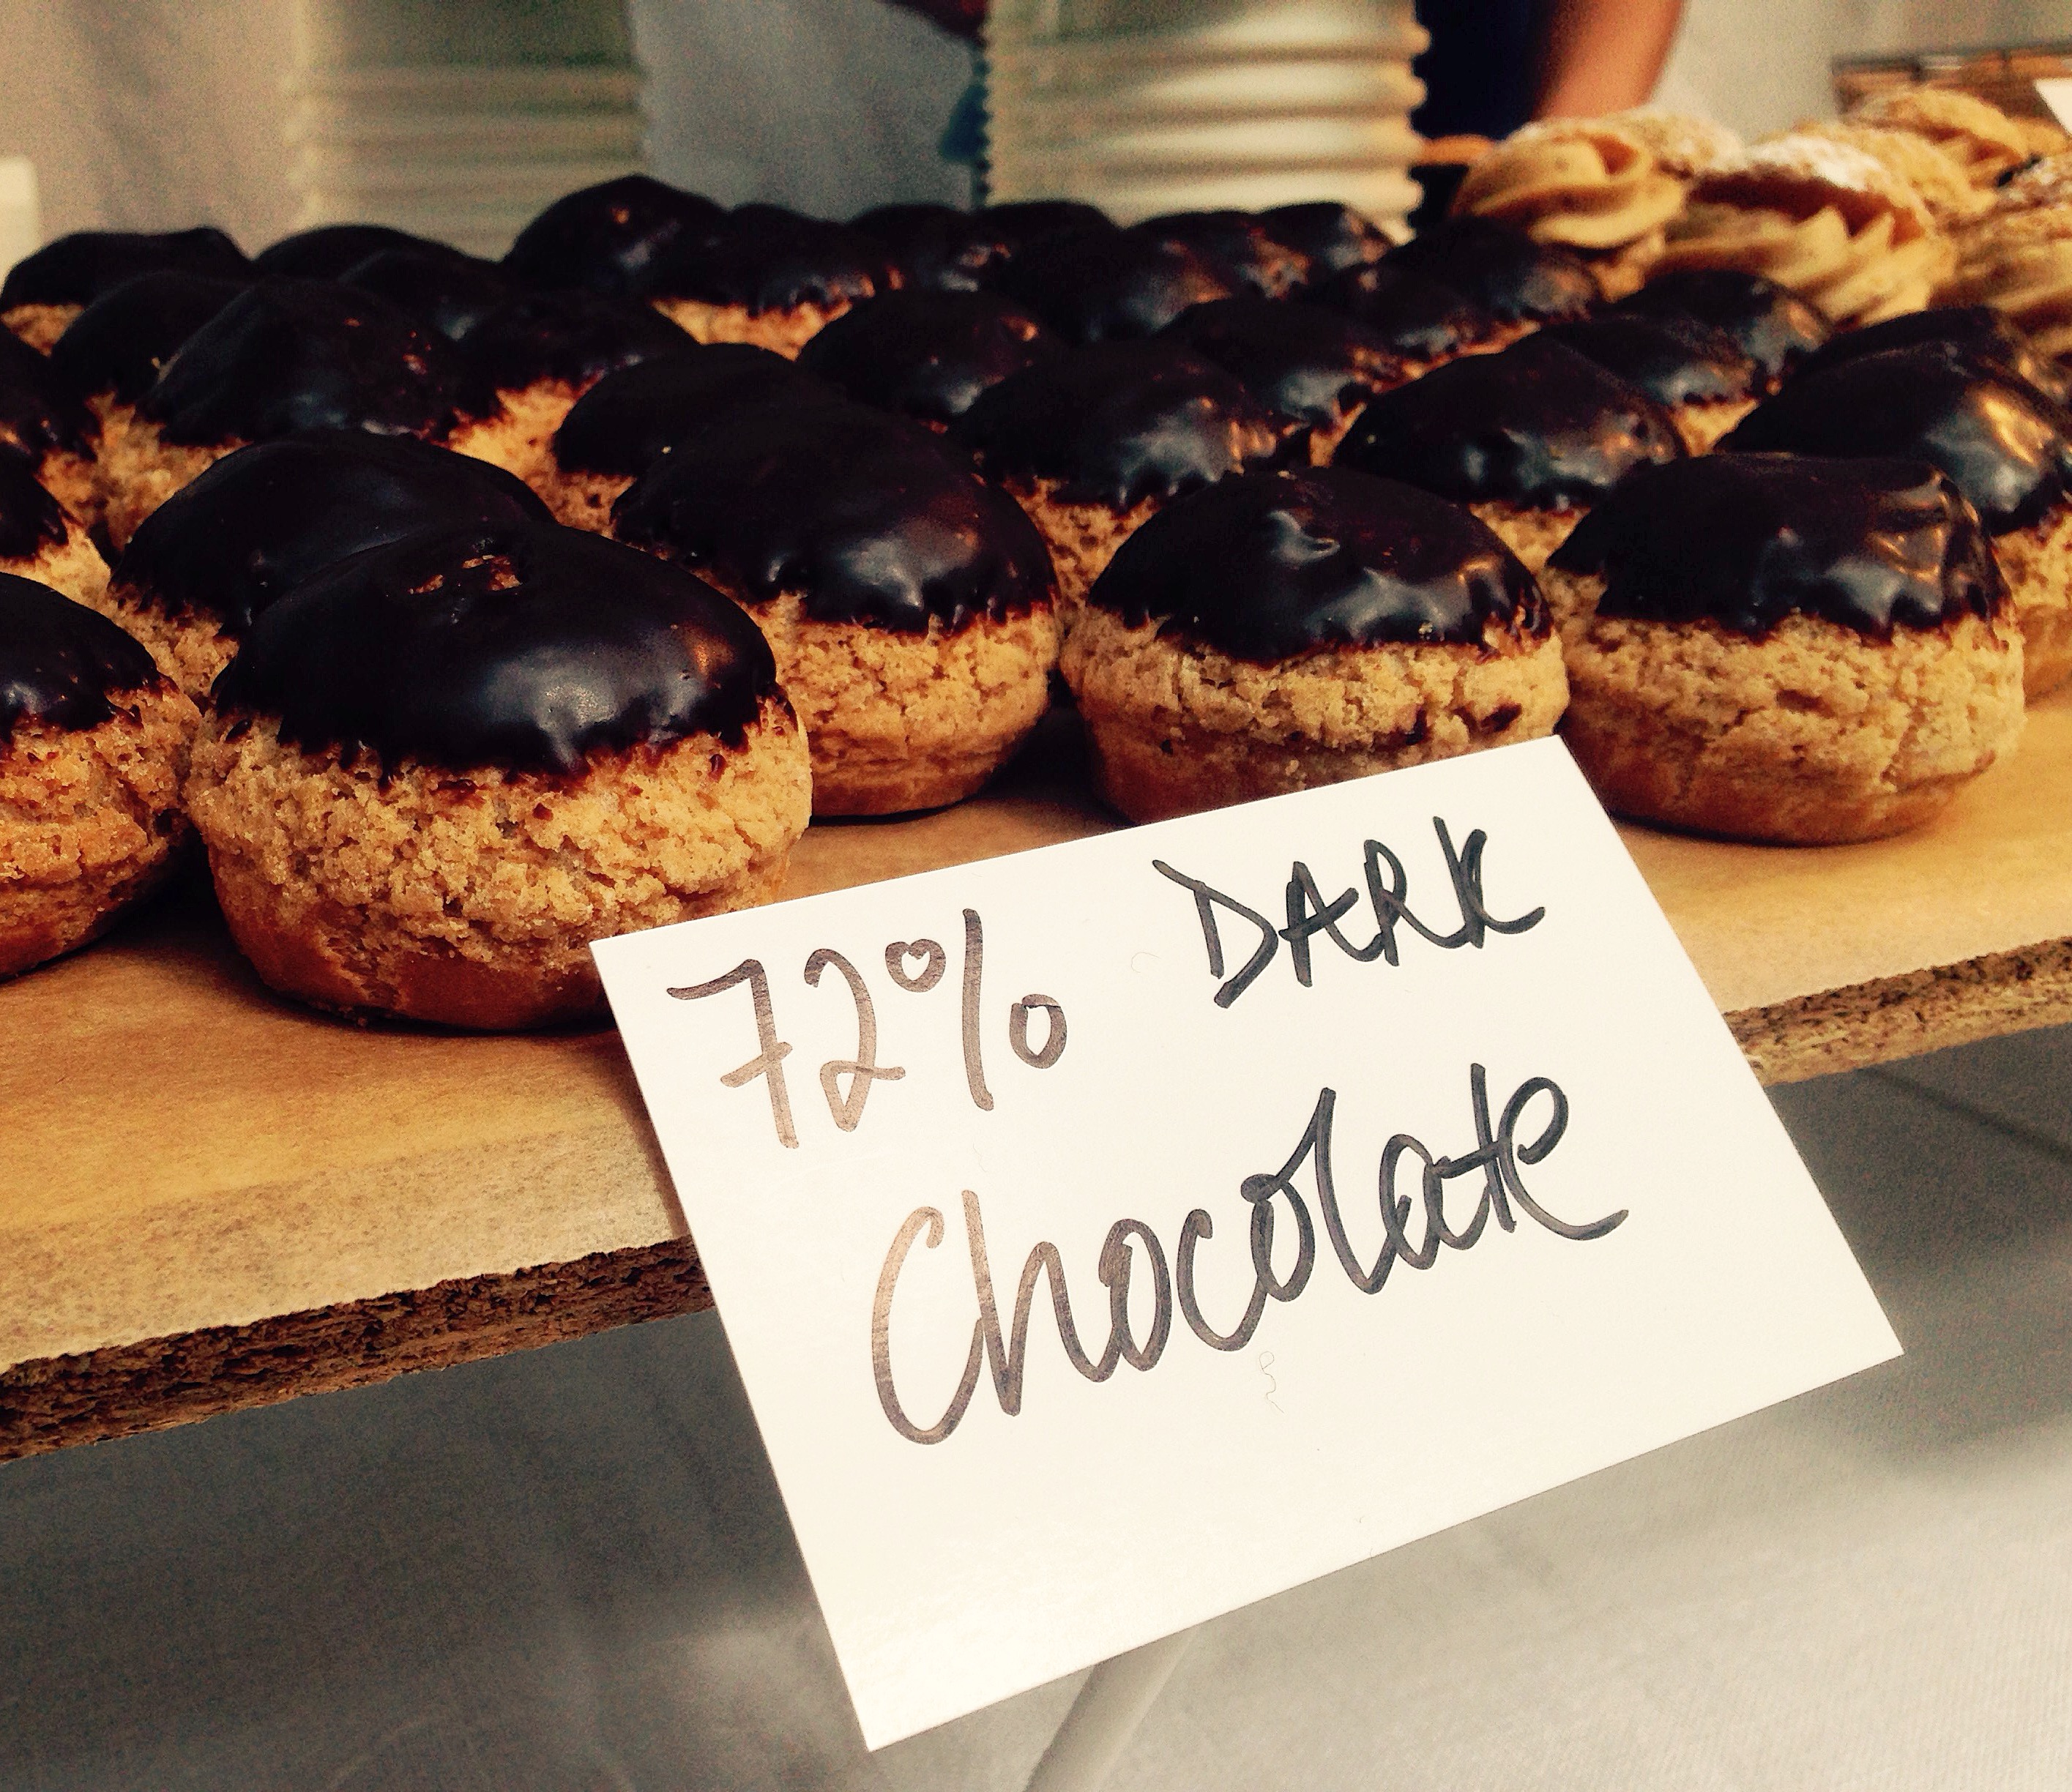 72% DARK
Chocolate